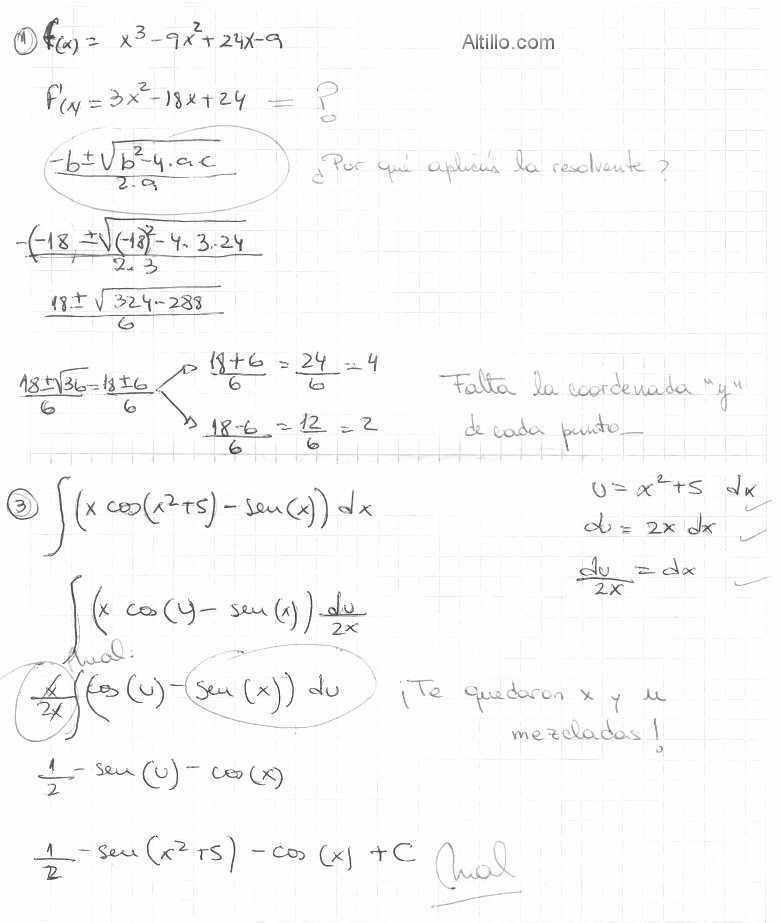 ① f(x) = x³ - 9x² + 24x - 9
Altillo.com
f'(x) = 3x² - 18x + 24 = ?
-b ± √b² - 4.a.c / 2.a
¿Por qué aplicás la resolvente?
-(-18 ± √(-18)² - 4.3.24 / 2.3
18 ± √324 - 288 / 6
18 ± √36 / 6 = 18 ± 6 / 6
18 + 6 / 6 = 24 / 6 = 4
18 - 6 / 6 = 12 / 6 = 2
Falta la coordenada "y"
de cada punto
③ ∫(x cos(x²+5) - sen(x)) dx
u = x² + 5 dx
du = 2x dx
du / 2x = dx
∫(x cos(u) - sen(x)) du / 2x
¡mal!
x / 2x ∫(cos(u) - sen(x)) du
¡Te quedaron x y u
mezcladas!
1/2 - sen(u) - cos(x)
1/2 - sen(x²+5) - cos(x) + C
mal